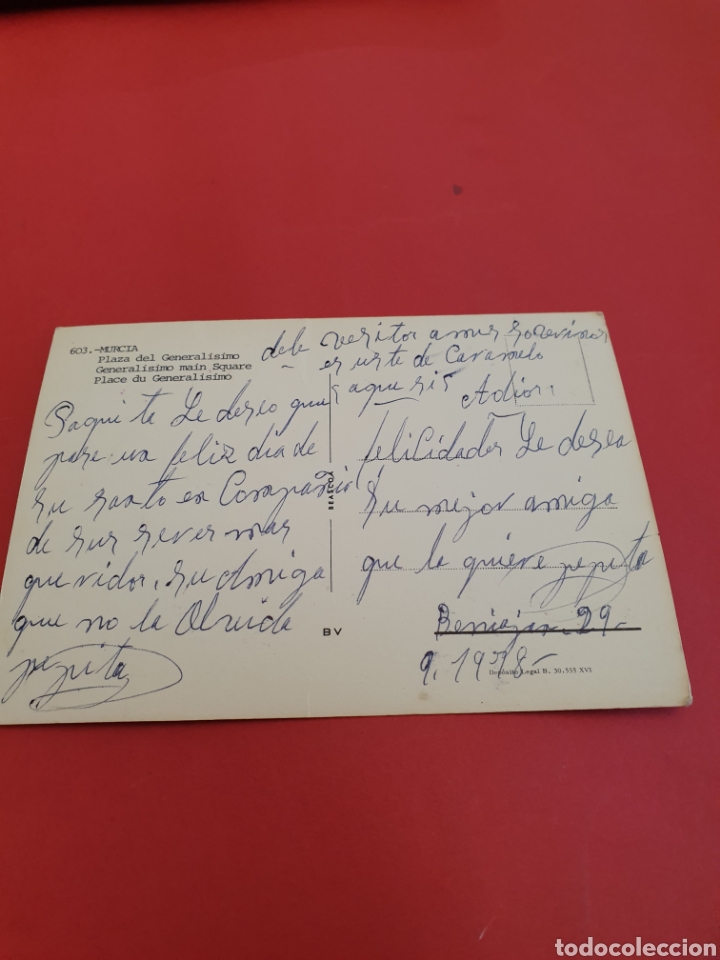 603.-MURCIA
Plaza del Generalísimo
Generalísimo main Square
Place du Generalísimo
dele vesitos a mis
de Caramelo
Adios,
Paqui te Le deseo que
pase un feliz dia de
su santo en Compañia
de sus seres mas
queridos. su Amiga
que no la Olvida
pepita
BEASCOA
BV
felicidades Le desea
su mejor amiga
que la quiere pepita
Beniajan 29-
9. 1978-
Depósito Legal B. 30.355 XVI
todocoleccion